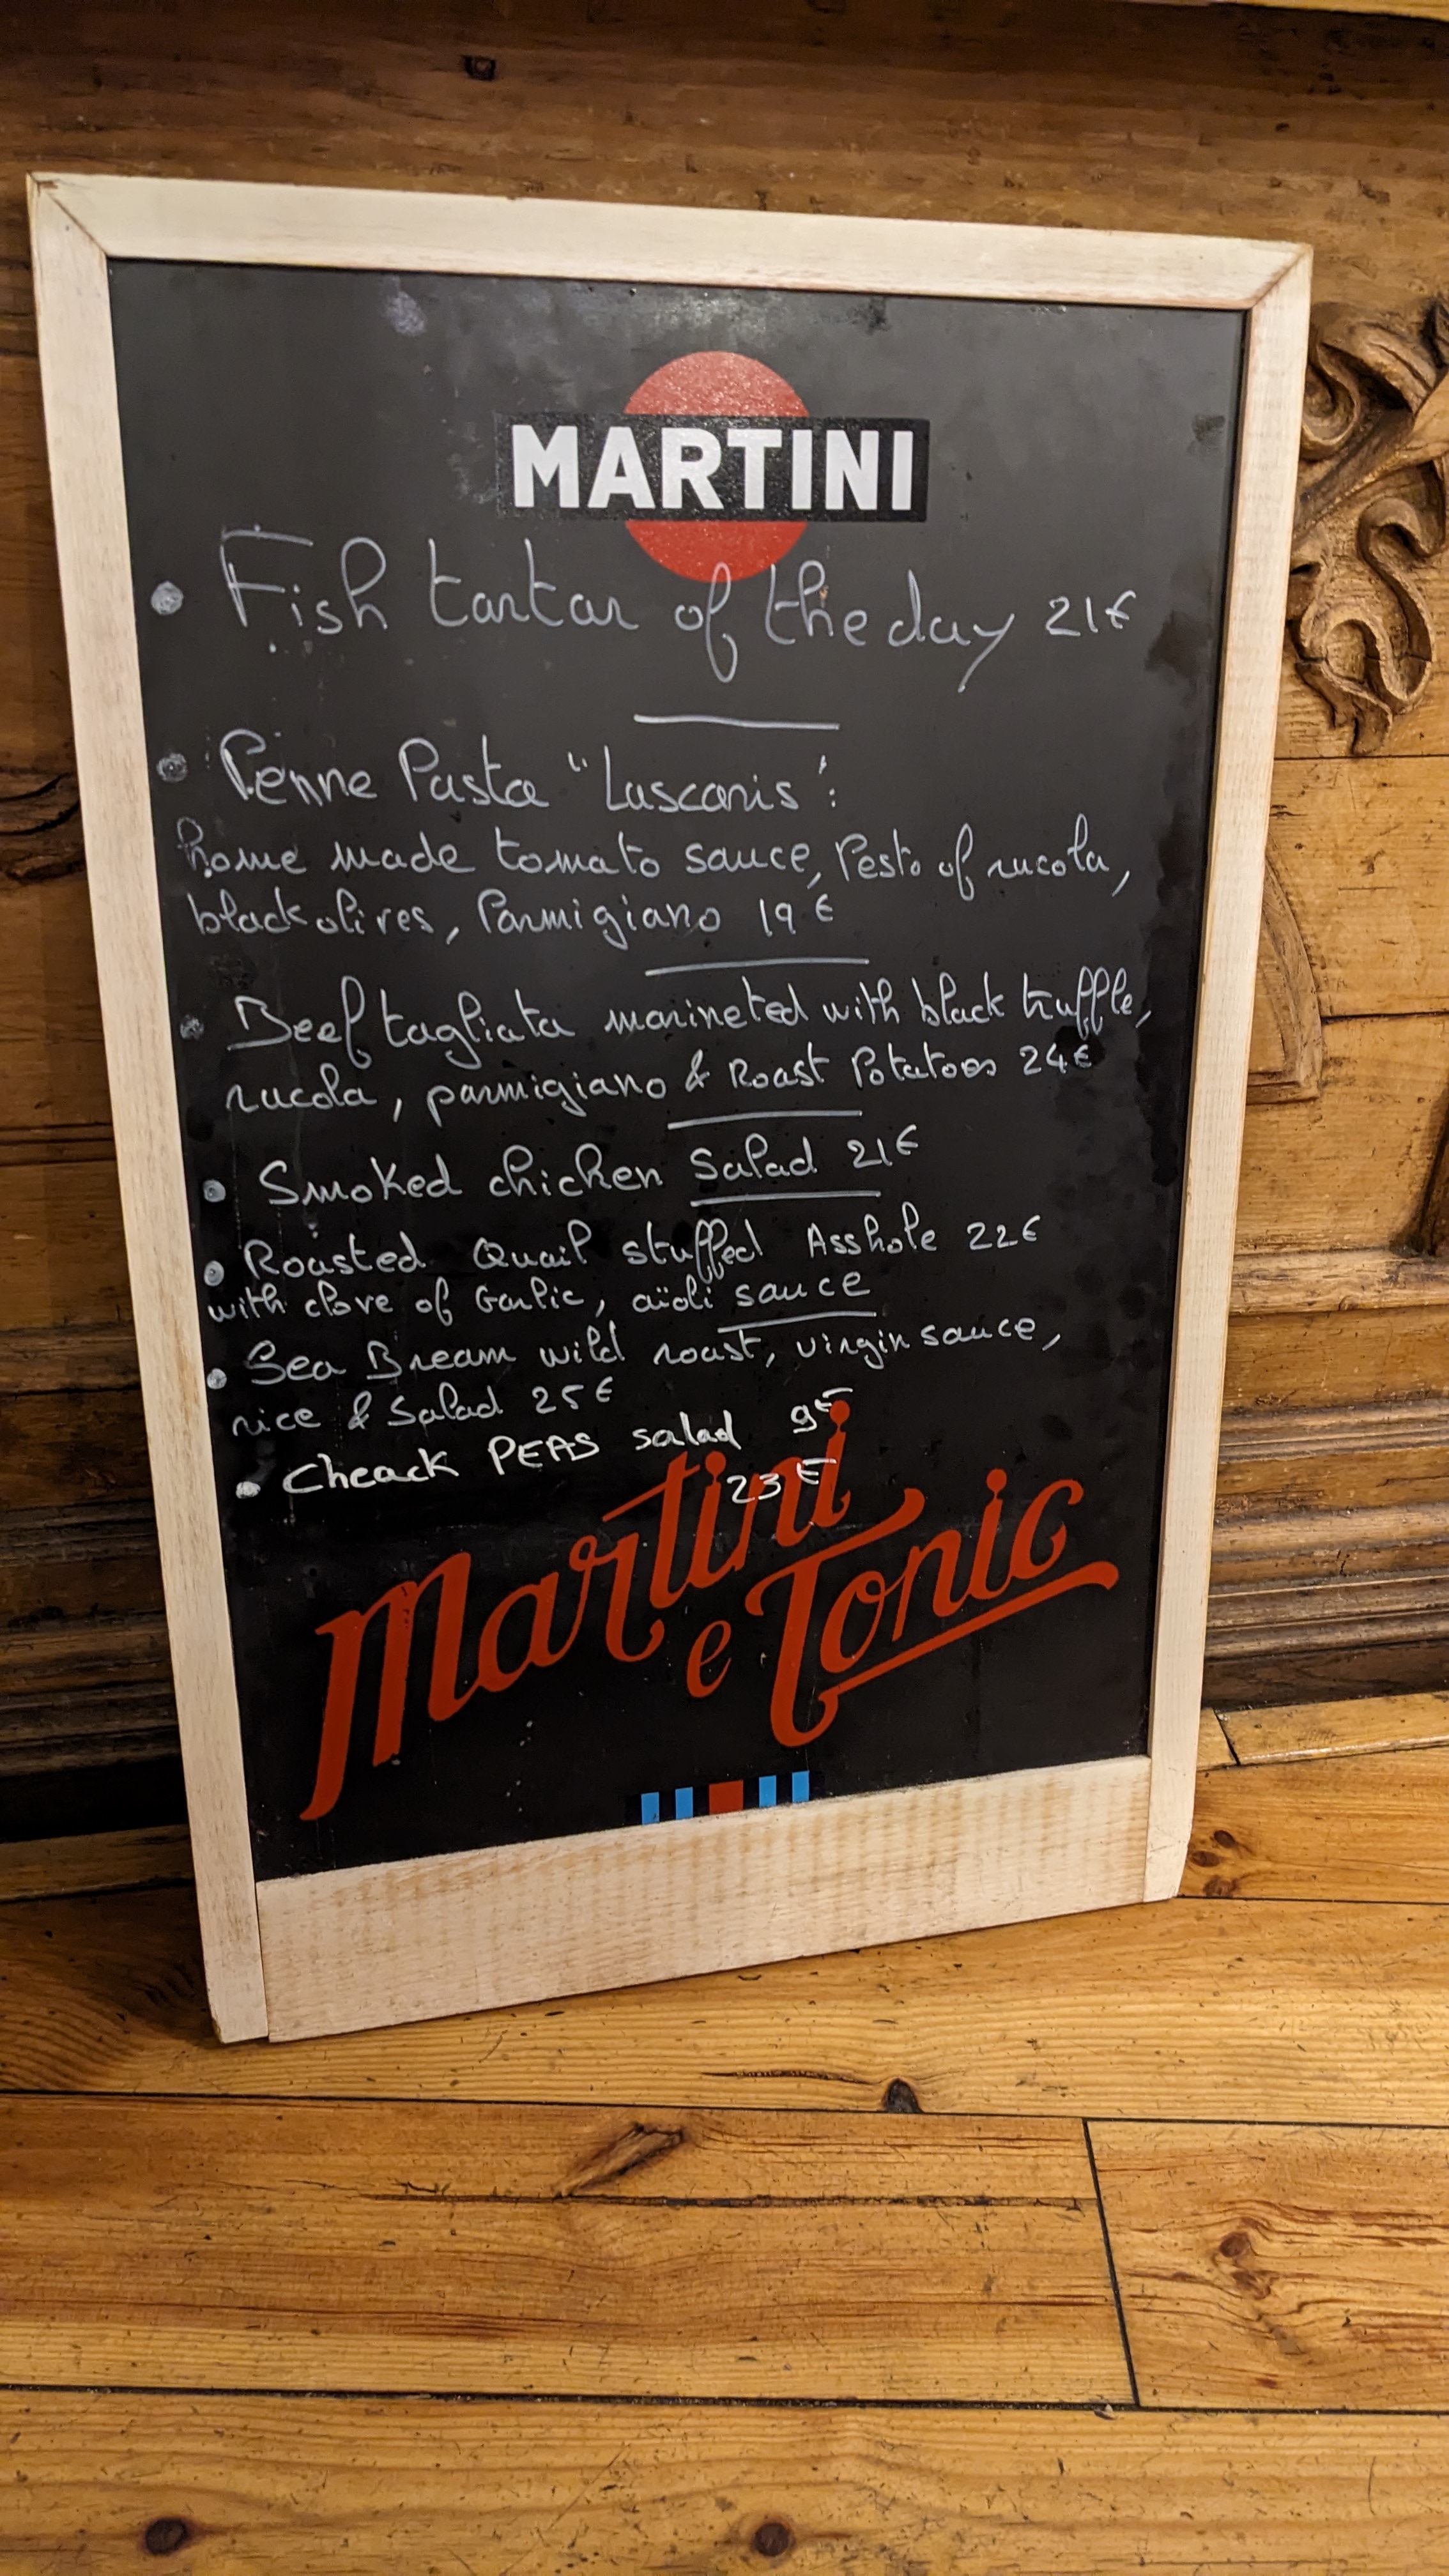 MARTINI
• Fish tartar of the day 21€
• Penne Pasta "Luscanis":
home made tomato sauce, Pesto of rucola,
black olives, Parmigiano 19€
• Beef tagliata marineted with black truffle,
rucola, parmigiano & Roast Potatoes 24€
• Smoked chicken Salad 21€
• Roasted Quail stuffed Asshole 22€
with clove of Garlic, aïoli sauce
• Sea Bream wild roast, virgin sauce,
rice & Salad 25€
• Cheack PEAS salad 9€
23€
Martini
e Tonic